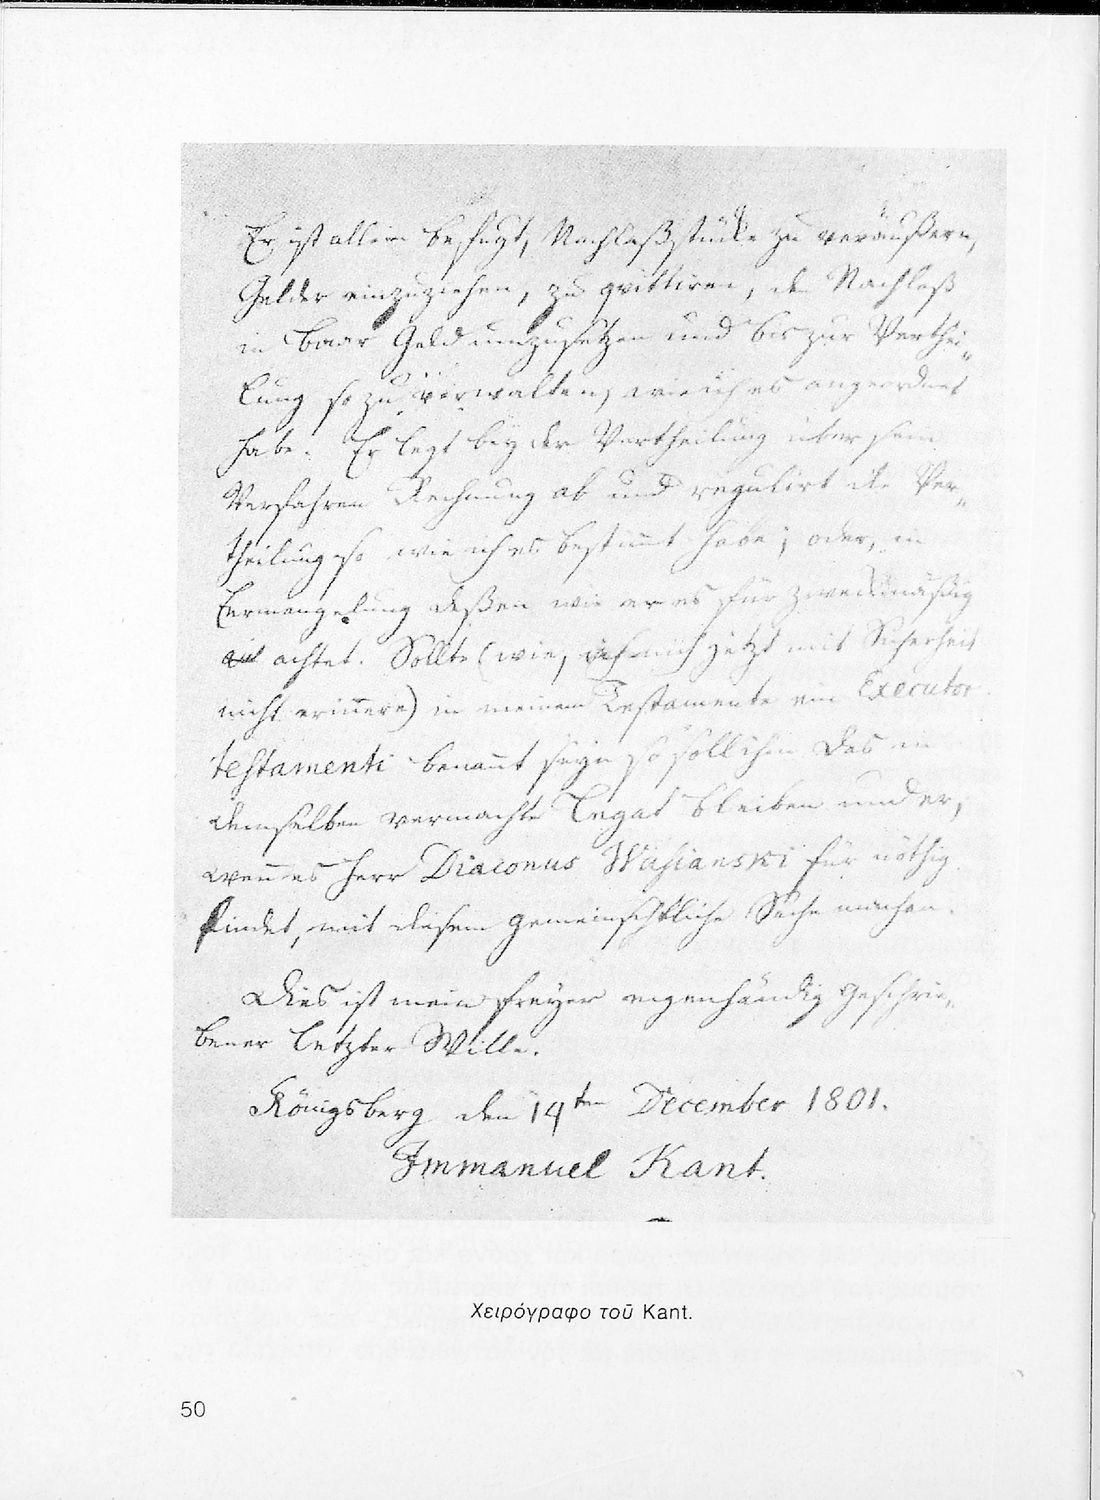 Er ist allein befugt, Nachlaßstücke zu veräußern,
Gelder einzuziehen, zu quittiren, den Nachlaß
in baar Geld umzusetzen und bis zur Verthei„
lung so zu verwalten, wie ich es angeordnet
habe. Er legt bey der Vertheilung über sein
Verfahren Rechnung ab und regulirt die Ver„
theilung so wie ich es bestim̄t habe; oder, in
Ermangelung deßen wie er es für zweckmäßig
achtet. Sollte (wie, ich mich jetzt mit Sicherheit
nicht erin̄ere) in meinem Testamente ein Executor
testamenti benan̄t seyn so soll ihm das in
demselben vermachte Legat bleiben und er,
wen̄ es Herr Diaconus Wasianski für nöthig
findet, mit diesem gemeinschftliche Sache machen.
Dies ist mein freyer eigenhändig geschrie„
bener letzter Wille.
Königsberg den 14ten December 1801.
Immanuel Kant.
Χειρόγραφο τοῦ Kant.
50